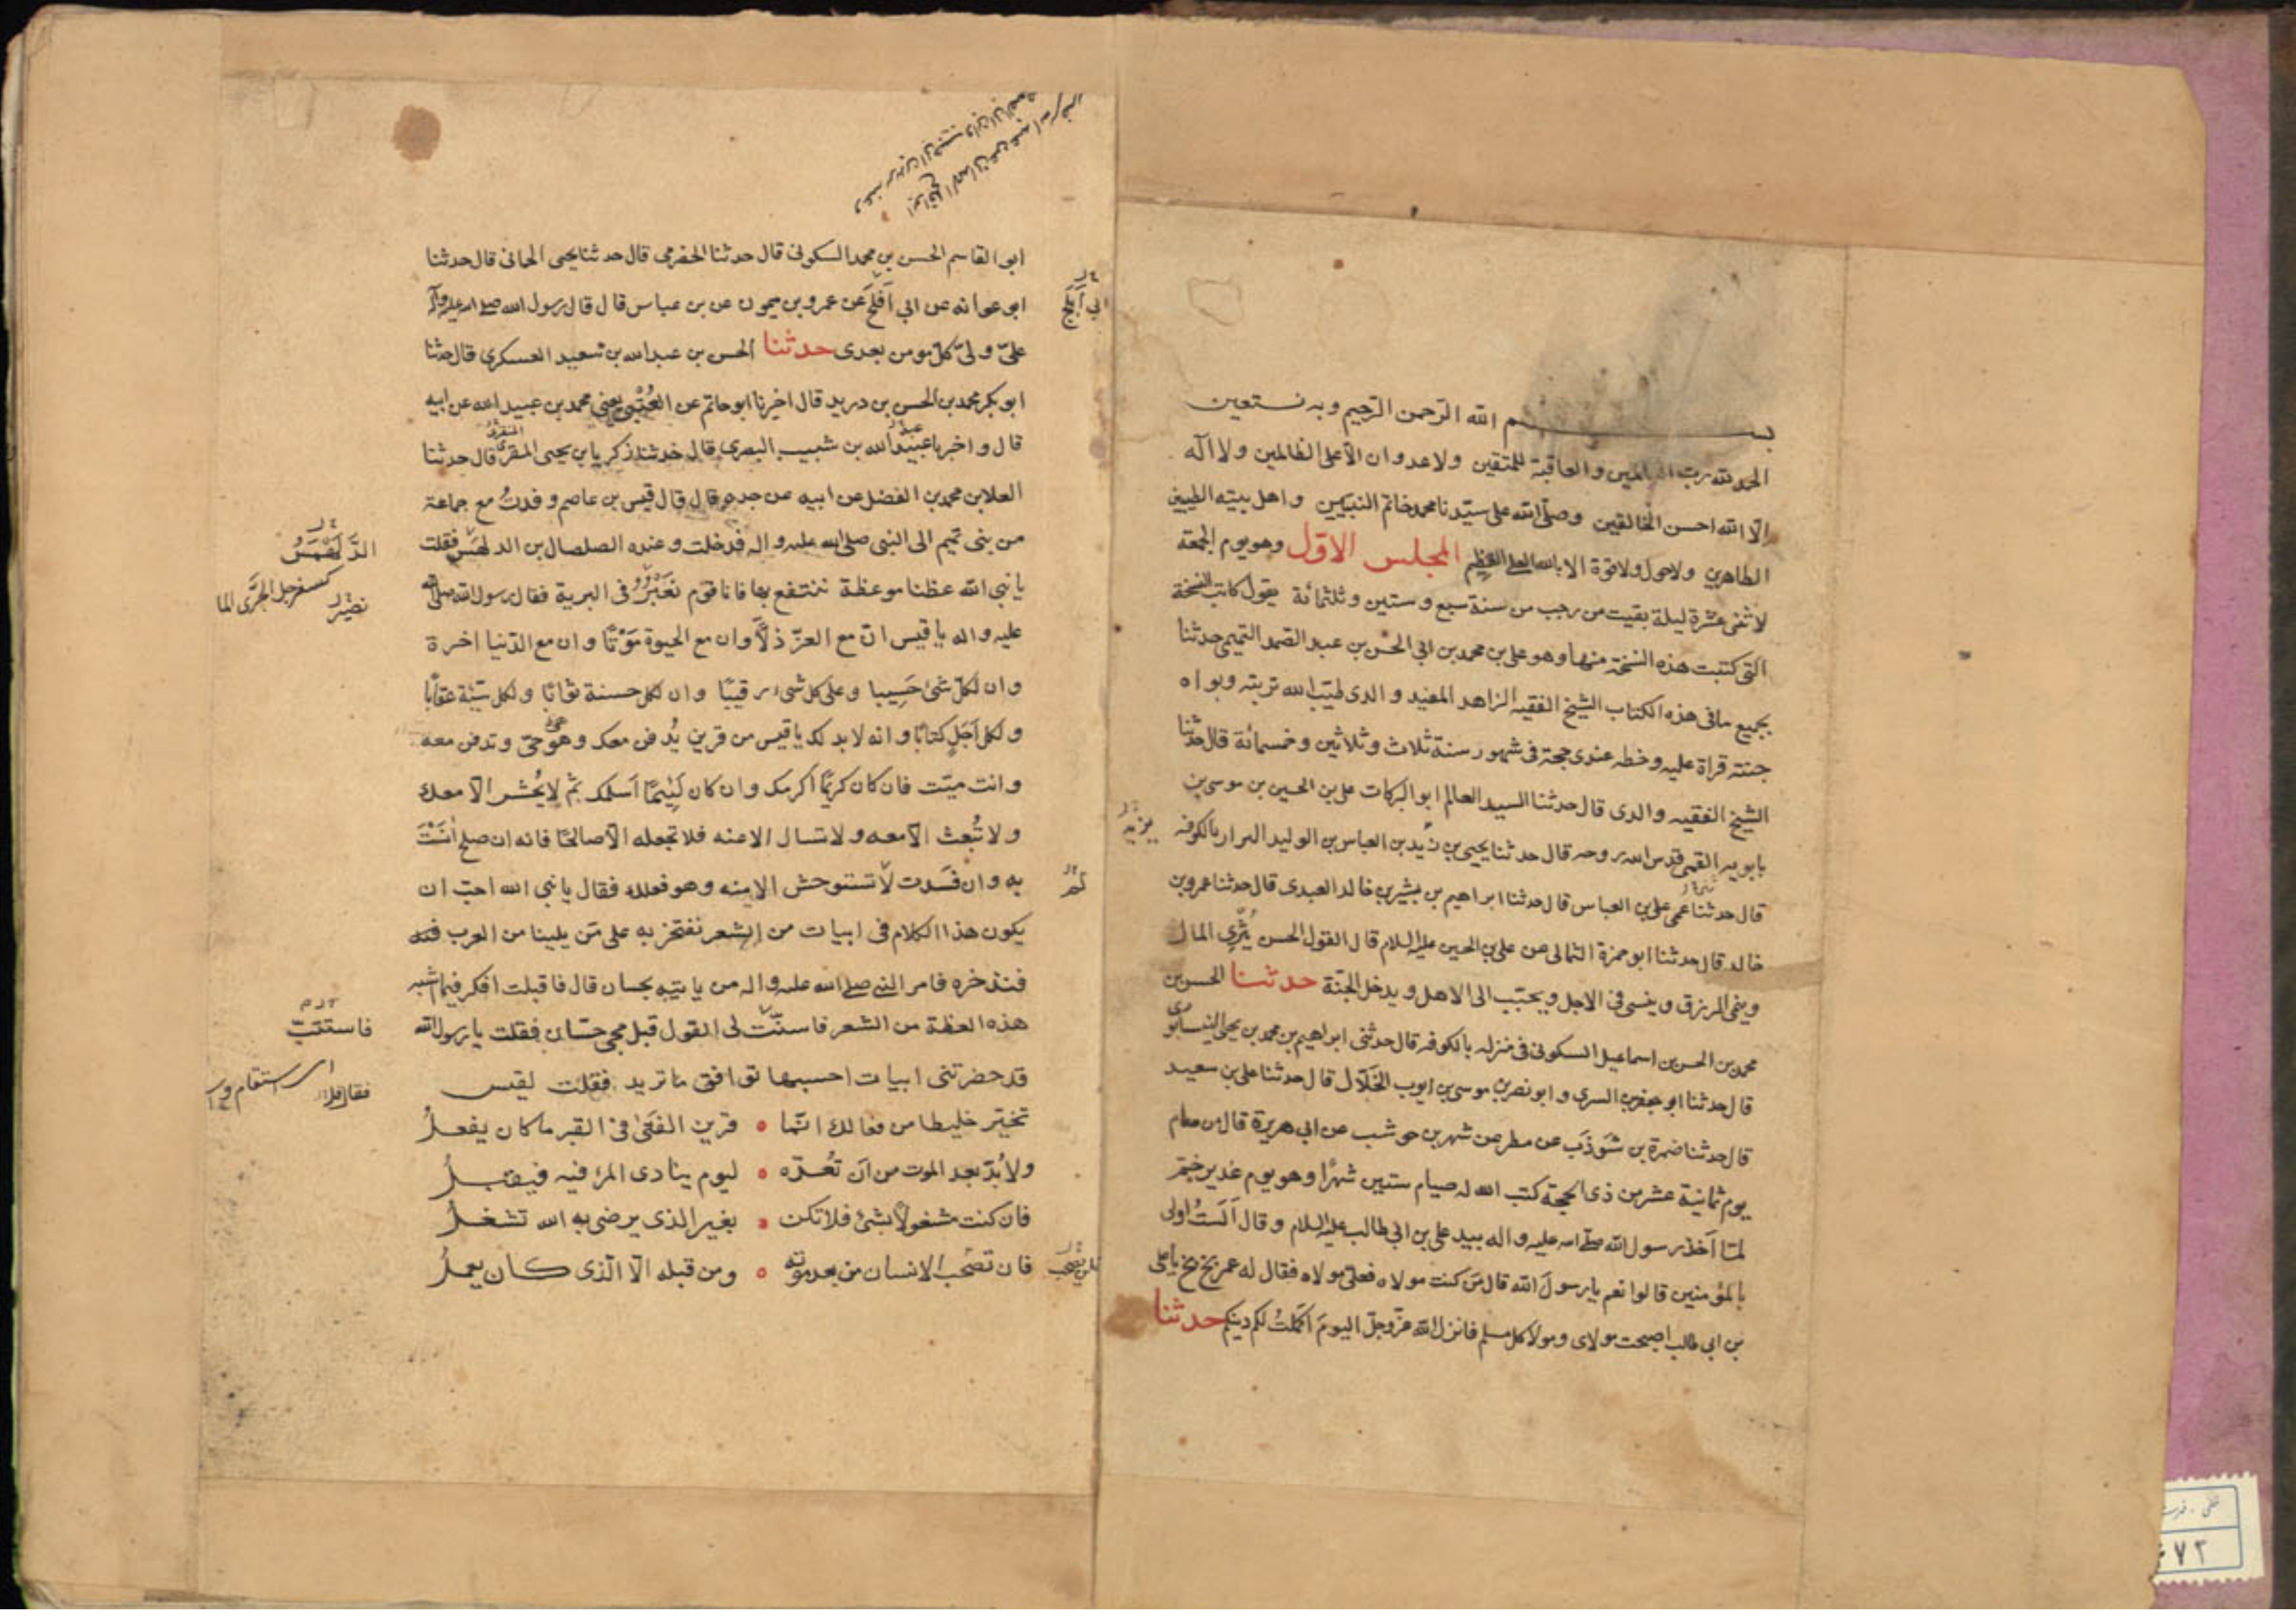 بسم الله الرحمن الرحيم وبه نستعين
الحمد لله رب العالمين والعاقبة للمتقين ولا عدوان الا على الظالمين ولا اله
الا الله احسن الخالقين وصلى الله على سيدنا محمد خاتم النبيين واهل بيته الطيبين
الطاهرين ولا حول ولا قوة الا بالله العلى العظيم المجلس الاول وهو يوم الجمعة
لاثنى عشرة ليلة بقيت من رجب من سنة سبع وستين وثلثمائة يقول كاتب النسخة
التى كتبت هذه النسخة منها وهو على بن محمد بن ابى الحسن بن عبد الصمد التميمى حدثنا
بجميع ما فى هذه الكتاب الشيخ الفقيه الزاهد المفيد والدى طيب الله تربته وبواه
جنته قراة عليه وخطه عندى حجة فى شهور سنة ثلاث وثلاثين وخمسمائة قال حدثنا
الشيخ الفقيه والدى قال حدثنا السيد العالم ابو البركات على بن الحسين بن موسى بن
بابويه القمى قدس الله روحه قال حدثنا يحيى بن زيد بن العباس بن الوليد البزار بالكوفه
يزيد
قال حدثنا عمى على بن العباس قال حدثنا ابراهيم بن بشير بن خالد العبدى قال حدثنا عمرو بن
خالد قال حدثنا ابو حمزة الثمالى عن على بن الحسين عليه السلام قال القول الحسن يثرى المال
وينمى الرزق وينسى فى الاجل ويحبب الى الاهل ويدخل الجنة حدثنا الحسن بن
محمد بن الحسن بن اسماعيل السكونى فى منزله بالكوفه قال حدثنى ابراهيم بن محمد بن يحيى النيسابورى
قال حدثنا ابو جعفر بن السرى وابو نصر بن موسى بن ايوب الخلال قال حدثنا على بن سعيد
قال حدثنا ضمرة بن شوذب عن مطر عن شهر بن حوشب عن ابى هريرة قال من صام
يوم ثمانية عشر من ذى الحجة كتب الله له صيام ستين شهرا وهو يوم غدير خم
لما اخذ رسول الله صلى الله عليه واله بيد على بن ابى طالب عليه السلام وقال الست اولى
بالمؤمنين قالوا نعم يا رسول الله قال من كنت مولاه فعلى مولاه فقال له عمر بخ بخ يا على
بن ابى طالب اصبحت مولاى ومولا كل مسلم فانزل الله عز وجل اليوم اكملت لكم دينكم حدثنا
ابو القاسم الحسن بن محمد السكونى قال حدثنا الحضرمى قال حدثنا يحيى الحمانى قال حدثنا
ابو عوانه عن ابى افلح عن عمرو بن ميمون عن بن عباس قال قال رسول الله صلى الله عليه وآله
ابى ابلج
على ولى كل مومن بعدى حدثنا الحسن بن عبد الله بن سعيد العسكرى قال حدثنا
ابو بكر محمد بن الحسن بن دريد قال اخبرنا ابو حاتم عن العتبى يعنى محمد بن عبيد الله عن ابيه
قال واخبرنا عبيد الله بن شبيب البصرى قال حدثنا زكريا بن يحيى المقرى قال حدثنا
العلا بن محمد بن الفضل عن ابيه عن جده قال قال قيس بن عاصم وفدت مع جماعة
من بنى تميم الى النبى صلى الله عليه واله فدخلت وعنده الصلصال بن الدلهمس فقلت
الدلهمس
يا نبى الله عظنا موعظة ننتفع بها فانا قوم نعبر فى البرية فقال رسول الله صلى الله
عليه واله يا قيس ان مع العز ذلا وان مع الحيوة موتا وان مع الدنيا اخرة
وان لكل شئ حسيبا وعلى كل شئ رقيبا وان لكل حسنة ثوابا ولكل سيئة عقابا
ولكل اجل كتابا وانه لا بد لك يا قيس من قرين يدفن معك وهو حى وتدفن معه
وانت ميت فان كان كريما اكرمك وان كان لئيما اسلمك ثم لا يحشر الا معك
ولا تبعث الا معه ولا تسال الا عنه فلا تجعله الا صالحا فانه ان صلح انست
به وان فسدت لا تستوحش الا منه وهو فعلك فقال يا نبى الله احب ان
يكون هذا الكلام فى ابيات من الشعر نفتخر به على من يلينا من العرب
فندخره فامر النبى صلى الله عليه واله من ياتيه بحسان قال فاقبلت افكر فيما اشبه
هذه العظة من الشعر فاستتب لى القول قبل مجى حسان فقلت يا رسول الله
فاستتب
قد حضرتنى ابيات احسبها توافق ما تريد فقلت لقيس
تخير خليطا من فعالك انما قرين الفتى فى القبر ما كان يفعل
ولا بد بعد الموت من ان تعده ليوم ينادى المرء فيه فيقبل
فان كنت مشغولا بشئ فلا تكن بغير الذى يرضى به الله تشغل
فان تصحب الانسان من بعد موته ومن قبله الا الذى كان يعمل